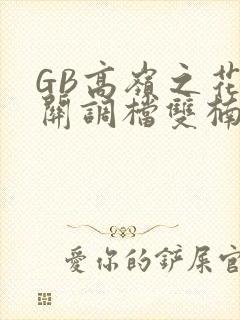 GB高嶺之花
開調檔雙楠
愛你的鏟屎官